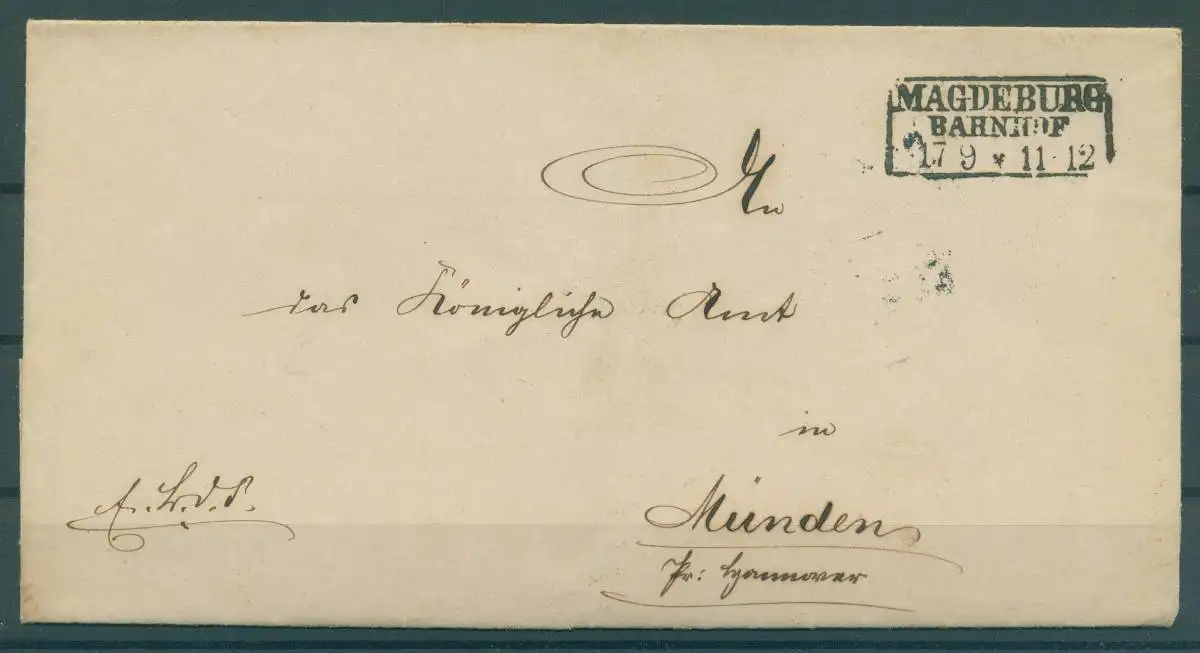 MAGDEBURG
BAHNHOF
17 9 * 11-12
An
das Königliche Amt
in
Münden
Pr: Hannover